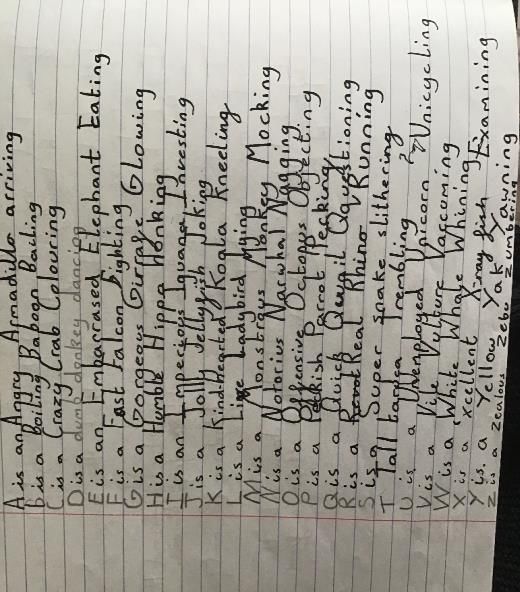 A is an Angry Armadillo arriving
B is a boiling Baboon Bailing
C is a Crazy Crab Colouring
D is a dump donkey dancing
E is an Embarrased Elephant Eating
F is a Fast Falcon Fighting
G is a Gorgeous Girrafe Glowing
H is a Humble Hippo Honking
I is an Impecious Iguana Investing
J is a Jolly Jellyfish Joking
K is a Kindhearted Koala Kneeling
L is a Ladybird lying
M is a Monstrous Monkey Mocking
N is a Notorius Narwhal Nagging
O is a Offensive Octopus Objecting
P is a Parrot Peaking
Q is a Quick Quail Questioning
R is a Real Rhino Running
S is a Super snake slithering
T Tall Trembling
U is a Unemployed Unicorn Unicycling
V is a Vile Vulture Vacuming
W is a White Whale Whining
X is a 'xcellent X-ray fish Examining
Y is a Yellow Yak Yawning
Z is a zealous zebra zumbering